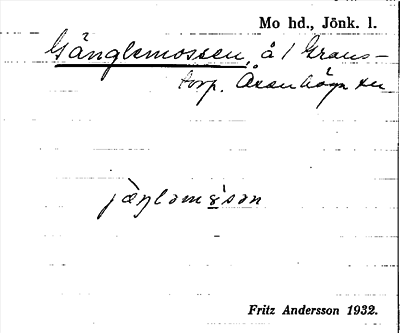 Mo hd., Jönk. l.
Gänglemossen, å 1 Grans-
torp. Åsenhöga sn
Fritz Andersson 1932.